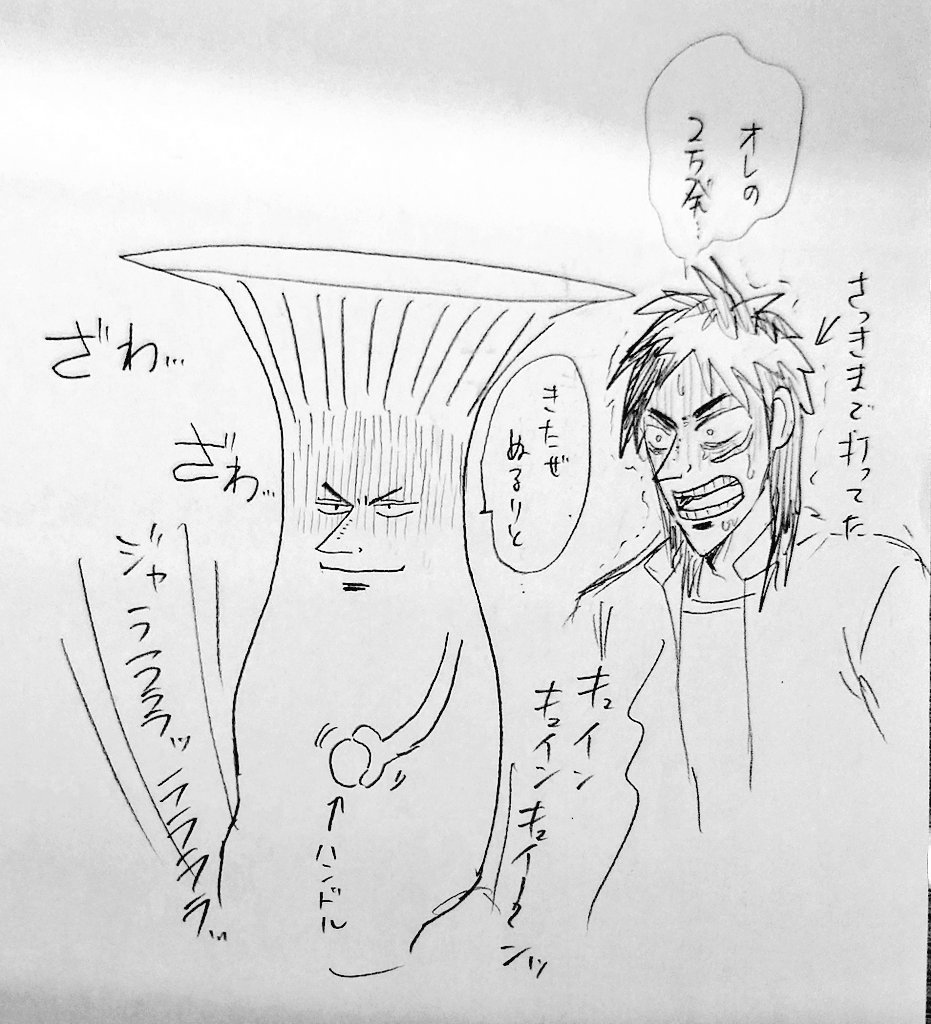 オレの
2万発…
さっきまで打ってた
きたぜ
ぬるりと
ざわ…
ざわ…
ジャラララララッラララララッ
キュイン
キュインキュイーンッ
ハンドル